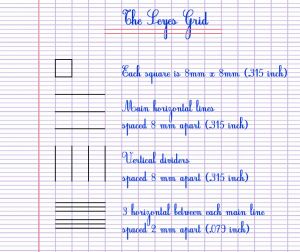 The Seyes Grid
Each square is 8mm x 8mm (.315 inch)
Main horizontal lines
spaced 8 mm apart (.315 inch)
Vertical dividers
spaced 8 mm apart (.315 inch)
3 horizontal between each main line
spaced 2 mm apart (.079 inch)